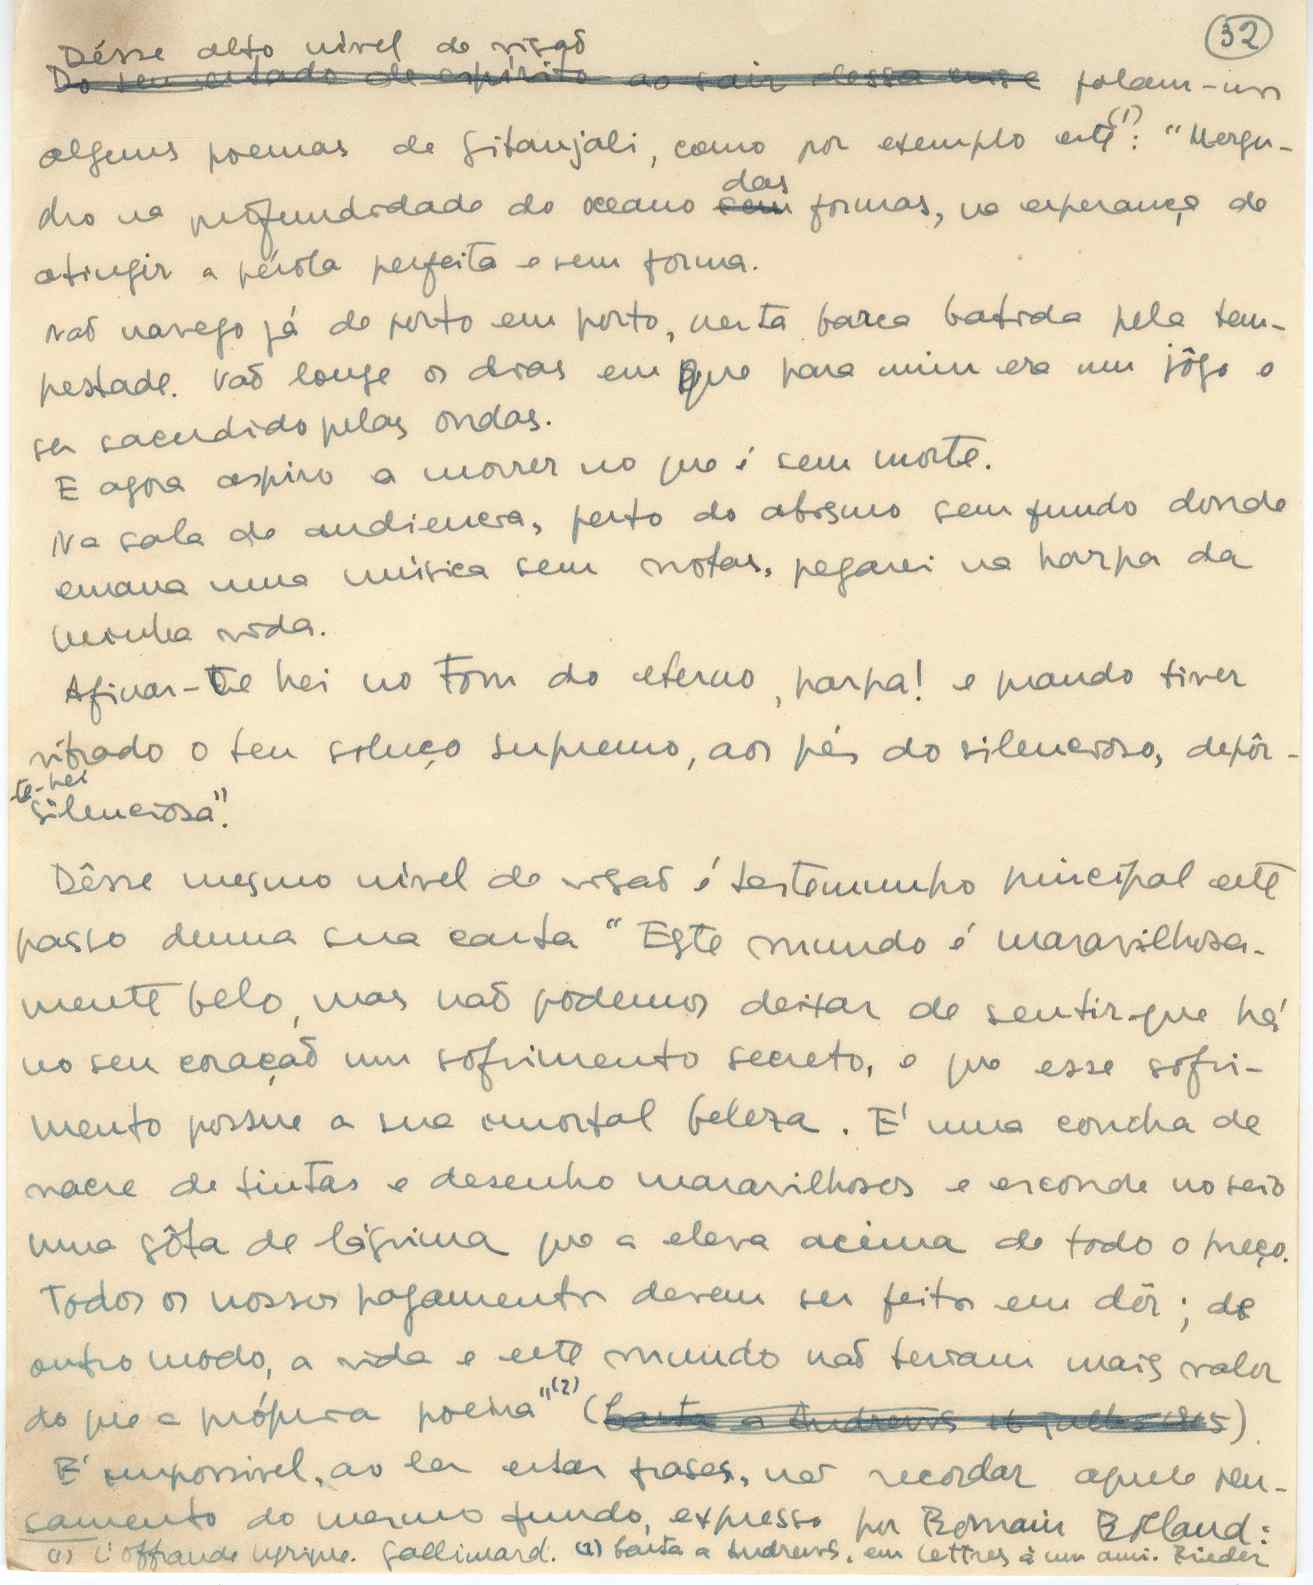 32
Désse alto nivel de visão
Do seu estado de espírito ao sair dessa crise falam-nos
alguns poemas de Gitanjali, como por exemplo este(1): "Mergu-
lho na profundidade do oceano sem das formas, na esperança de
atingir a pérola perfeita e sem forma.
Não navego já de porto em porto, nesta barca batida pela tem-
pestade. Vão longe os dias em que para mim era um jôgo o
ser sacudido pelas ondas.
E agora aspiro a morrer no que é sem morte.
Na sala de audiencia, perto do abismo sem fundo donde
emana uma música sem notas, pegarei na harpa da
minha vida.
Afinar-te hei no tom do eterno, harpa! e quando tiver
vibrado o teu soluço supremo, aos pés do silencioso, depôr-
te-hei
silenciosa".
Dêsse mesmo nivel de visão é testemunho principal este
passo duma sua carta "Este mundo é maravilhosa-
mente belo, mas não podemos deixar de sentir que há
no seu coração um sofrimento secreto, e que esse sofri-
mento possue a sua imortal beleza. E' uma concha de
nacre de tintas e desenho maravilhosos e esconde no seio
uma gôta de lágrima que a eleva acima de todo o preço.
Todos os nossos pagamentos devem ser feitos em dôr; de
outro modo, a vida e este mundo não teriam mais valor
do que a própria poeira"(2) (Carta a Andrews julho 1915).
E' impossivel, ao ler estas frases, não recordar aquele pen-
samento do mesmo fundo, expresso por Romain Rolland:
(1) L'offrande lyrique. Gallimard. (2) Carta a Andrews, em Lettres à un ami. Rieder